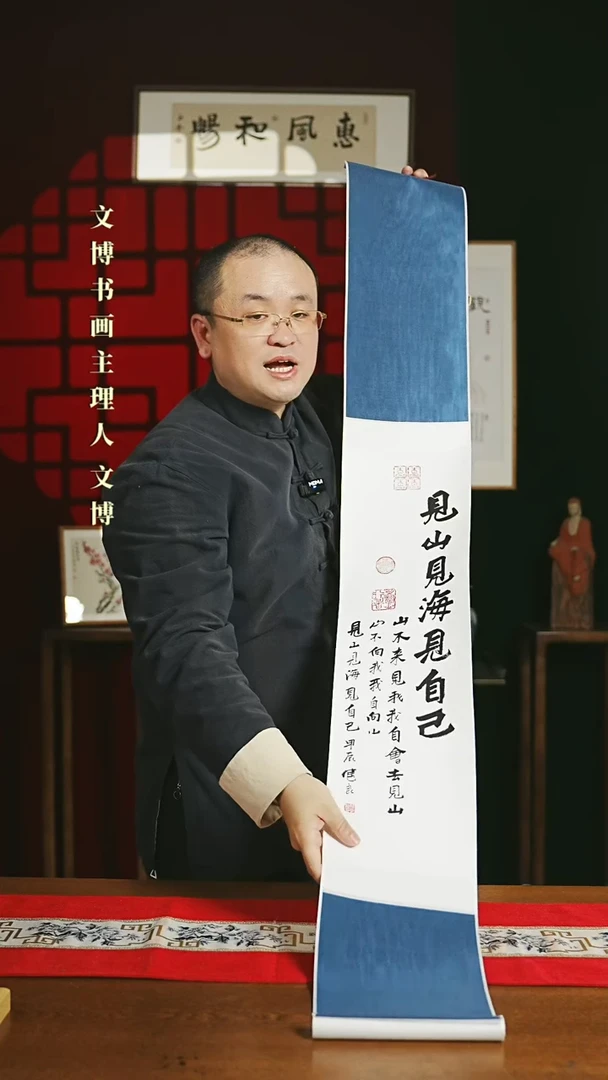 惠風和暢
文博书画主理人 文博
見山見海見自己
山不来見我我自會去見山
山不向我我自向山
見山見海見自己 甲辰